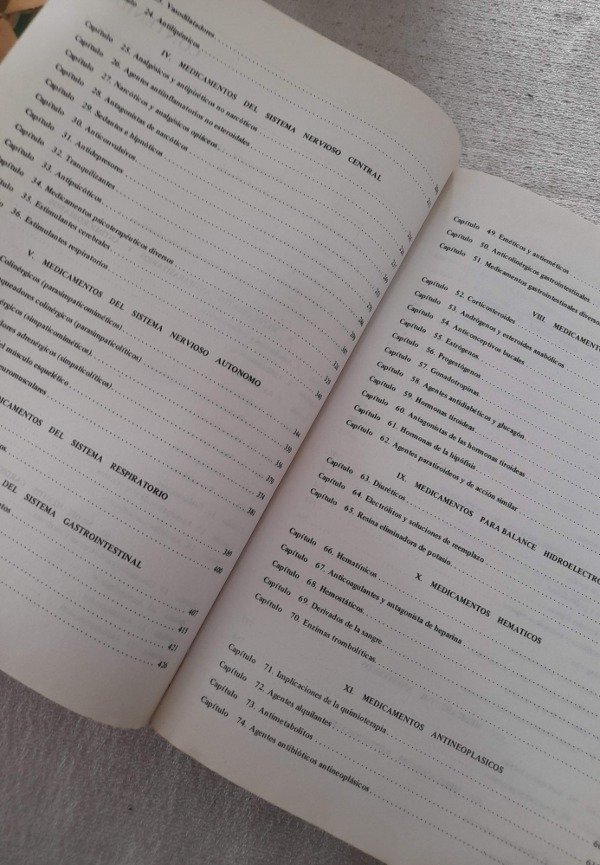 Vasodilatadores
24. Antilipénicos
IV MEDICAMENTOS DEL SISTEMA NERVIOSO CENTRAL
Capítulo 25. Analgésicos y antipiréticos no narcóticos
Capítulo 26. Agentes antiinflamatorios no esteroidales
Capítulo 27. Narcóticos y analgésicos opiáceos
Capítulo 28. Antagonistas de narcóticos
Capítulo 29. Sedantes e hipnóticos
Capítulo 30. Anticonvulsivos
Capítulo 31. Antidepresores
32. Tranquilizantes
33. Antipsicóticos
34. Medicamentos psicoterapéuticos diversos
35. Estimulantes cerebrales
36. Estimulantes respiratorios
V. MEDICAMENTOS DEL SISTEMA NERVIOSO AUTONOMO
Colinérgicos (parasimpaticomiméticos)
colinérgicos (parasimpaticolíticos)
(simpaticomiméticos) 344
adrenérgicos (simpaticolíticos) 350
músculo esquelético 356
370
374
DEL SISTEMA RESPIRATORIO
380
395
400
DEL SISTEMA GASTROINTESTINAL
407
415
421
426
Capítulo 49. Eméticos y antieméticos
Capítulo 50. Anticolinérgicos gastrointestinales
Capítulo 51. Medicamentos gastrointestinales diversos
VIII. MEDICAMENTO
Capítulo 52. Corticosteroides
Capítulo 53. Andrógenos y esteroides anabólicos
Capítulo 54. Anticonceptivos bucales
Capítulo 55. Estrógenos
Capítulo 56. Progestágenos
Capítulo 57. Gonadotropinas
Capítulo 58. Agentes antidiabéticos y glucagón
Capítulo 59. Hormonas tiroideas
Capítulo 60. Antagonistas de las hormonas tiroideas
Capítulo 61. Hormonas de la hipófisis
Capítulo 62. Agentes paratiroideos y de acción similar
IX. MEDICAMENTOS PARA BALANCE HIDROELECTRO
Capítulo 63. Diuréticos
Capítulo 64. Electrólitos y soluciones de reemplazo
Capítulo 65. Resina eliminadora de potasio
X. MEDICAMENTOS HEMATICOS
Capítulo 66. Hematínicos
Capítulo 67. Anticoagulantes y antagonista de heparina
Capítulo 68. Hemostáticos
Capítulo 69. Derivados de la sangre
Capítulo 70. Enzimas trombolíticas
XI. MEDICAMENTOS ANTINEOPLASICOS
Capítulo 71. Implicaciones de la quimioterapia
Capítulo 72. Agentes alquilantes
Capítulo 73. Antimetabolitos
Capítulo 74. Agentes antibióticos antineoplásicos